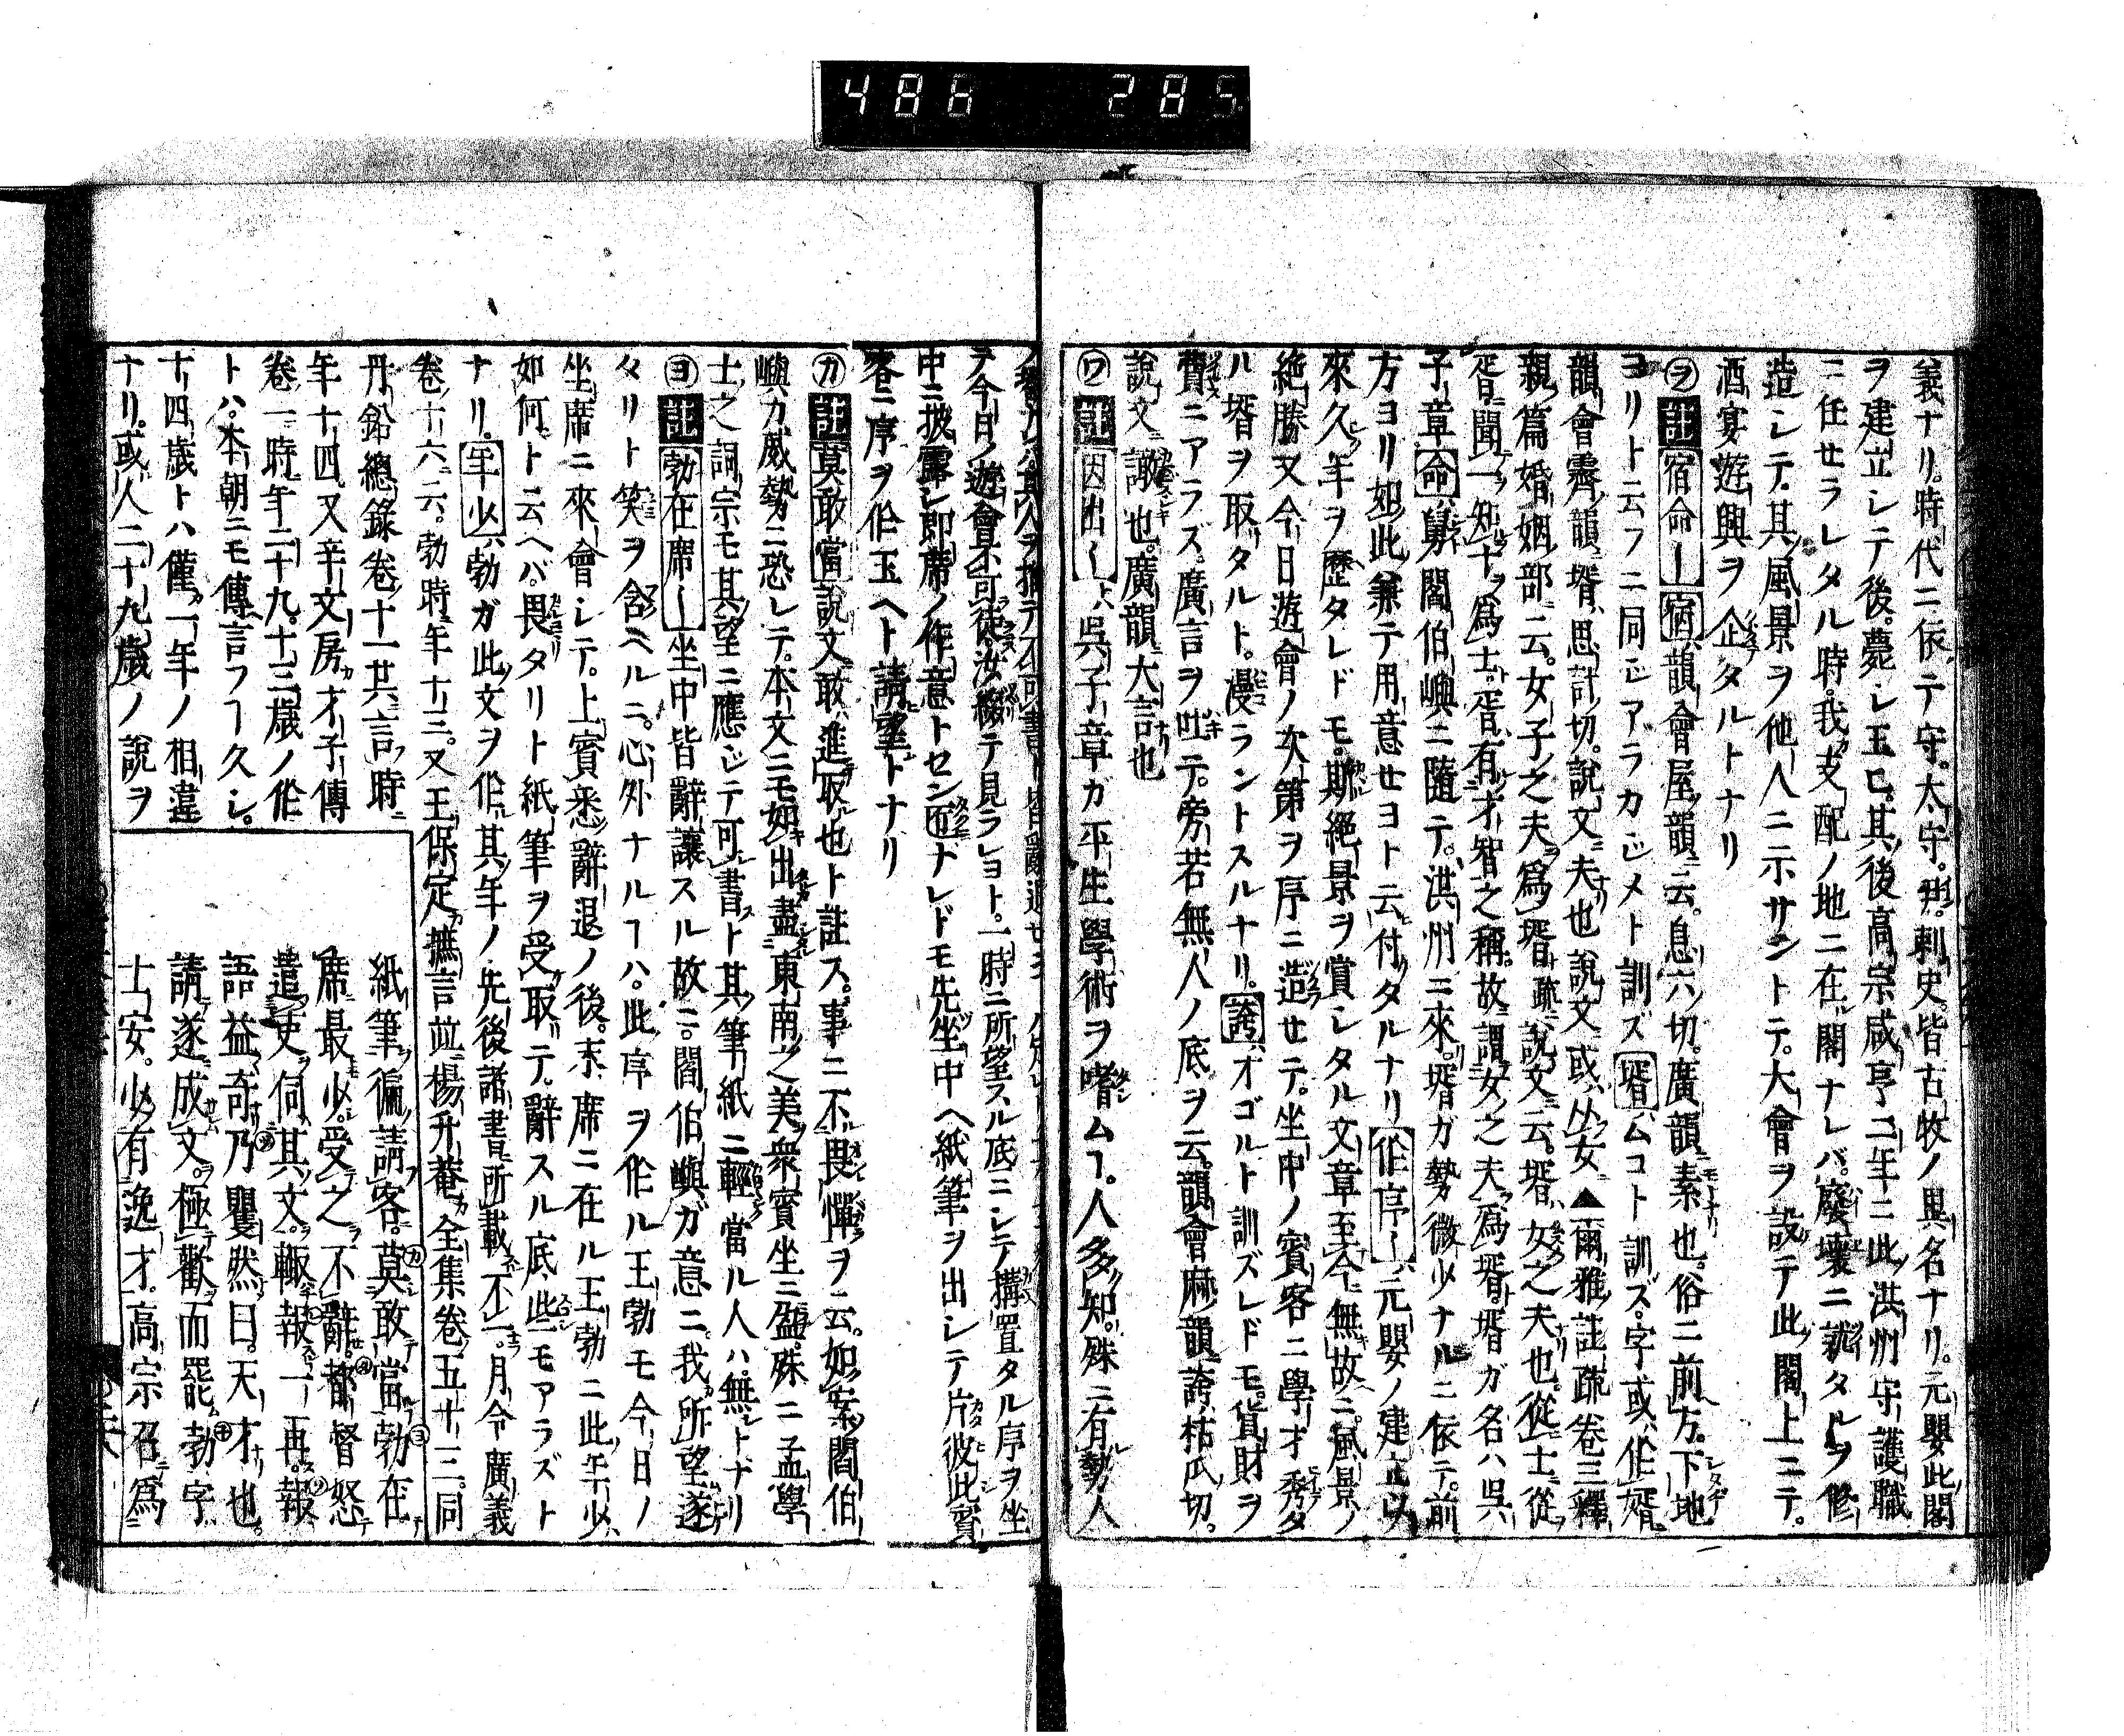 486 285
義ナリ。時代ニ依テ守。太守。刺史皆古牧ノ異名ナリ。元嬰此閣
ヲ建立シテ後。薨シ玉ヒ。其後高宗咸亨二年ニ此洪州守護職
ニ任セラレタル時。我支配ノ地ニ在閣ナレバ。廢壞ニ就タルヲ修
造シテ。其風景ヲ他人ニ示サントテ。大會ヲ設テ此閣上ニテ。
酒宴遊興ヲ企タルトナリ
ヲ註宿命ー宿韻會屋韻云。息六切。廣韻素也。俗ニ前方。下地
ヨリト云フニ同シアラカジメト訓ズ壻ムコト訓ズ。字或作婿
韻會霽韻壻思計切。說文夫也說文或从女▲爾雅註疏卷三釋
親篇婚姻部云。女子之夫爲壻疏說文云。壻女之夫也。從士從
胥聞一知十爲士。胥有才智之稱。故謂女之夫爲壻。壻ガ名ハ吳
子章命舅閻伯嶼ニ隨テ。洪州ニ來。壻ガ勢微少ナルニ依テ。前
方ヨリ如此兼テ用意セヨト云付タルナリ作序ー元嬰ノ建立以
來久年ヲ歷タレドモ。斯絕景ヲ賞シタル文章至今無故ニ。風景ノ
絕勝又今日遊會ノ次第ヲ序ニ造セテ。坐中ノ賓客ニ學才秀タ
ル壻ヲ取タルト。漫ラントスルナリ。誇オゴルト訓ズレドモ。貨財ヲ
費ニアラズ。廣言ヲ吐テ。旁若無人ノ底ヲ云。韻會麻韻誇枯瓜切。
說文譀也。廣韻大言也
ワ註因出ー吳子章ガ平生學術ヲ嗜ムコ。人多知。殊ニ有勢人
ヲ今日ノ遊會不可徒汝綴テ見ラレヨト。一時ニ所望スル底ニシテ構置タル序ヲ坐
中ニ披露シ即席ノ作意トセン匠ナレドモ先坐中ヘ紙筆ヲ出シテ片彼此賓
客ニ序ヲ作玉ヘト請望トナリ
カ註莫敢當說文敢進取也ト註ス。事ニ不畏憚ヲ云。如案閻伯
嶼カ威勢ニ恐レテ。本文ニモ如出盡東南之美衆賓坐ニ盈。殊ニ孟學
士之詞宗モ其望ニ應ジテ可書ト其筆紙ニ輕當ル人ハ無トナリ
ヨ註勃在席ー坐中皆辭讓スル故ニ。閻伯嶼ガ意ニ。我所望遂
タリト笑ヲ含ヘルニ。心外ナルコハ。此序ヲ作ル王勃モ今日ノ
坐席ニ來會シテ。上賓悉辭退ノ後。末席ニ在ル王勃ニ此年少
如何ト云ヘバ。畏タリト紙筆ヲ受取テ。辭スル底些モアラズト
ナリ。年少勃ガ此文ヲ作其年ノ先後諸書所載不一。月令廣義
卷十六云。勃時年十三。又王保定摭言並楊升菴全集卷五十三。同
丹鉛總錄卷十一其言時
年十四。又辛文房才子傳
卷一時年二十九。十三歲ノ作
トハ。本朝ニモ傳言フコ久シ。
十四歲トハ僅一年ノ相違
ナリ。或人二十九歲ノ說ヲ
紙筆徧請客。莫敢當勃在
席最少。受之不辭。都督怒
遣吏伺其文。輒報一再。報
語益奇乃矍然曰。天才也。
請遂成文。極歡而罷。勃字
士安。少有逸才。高宗召爲